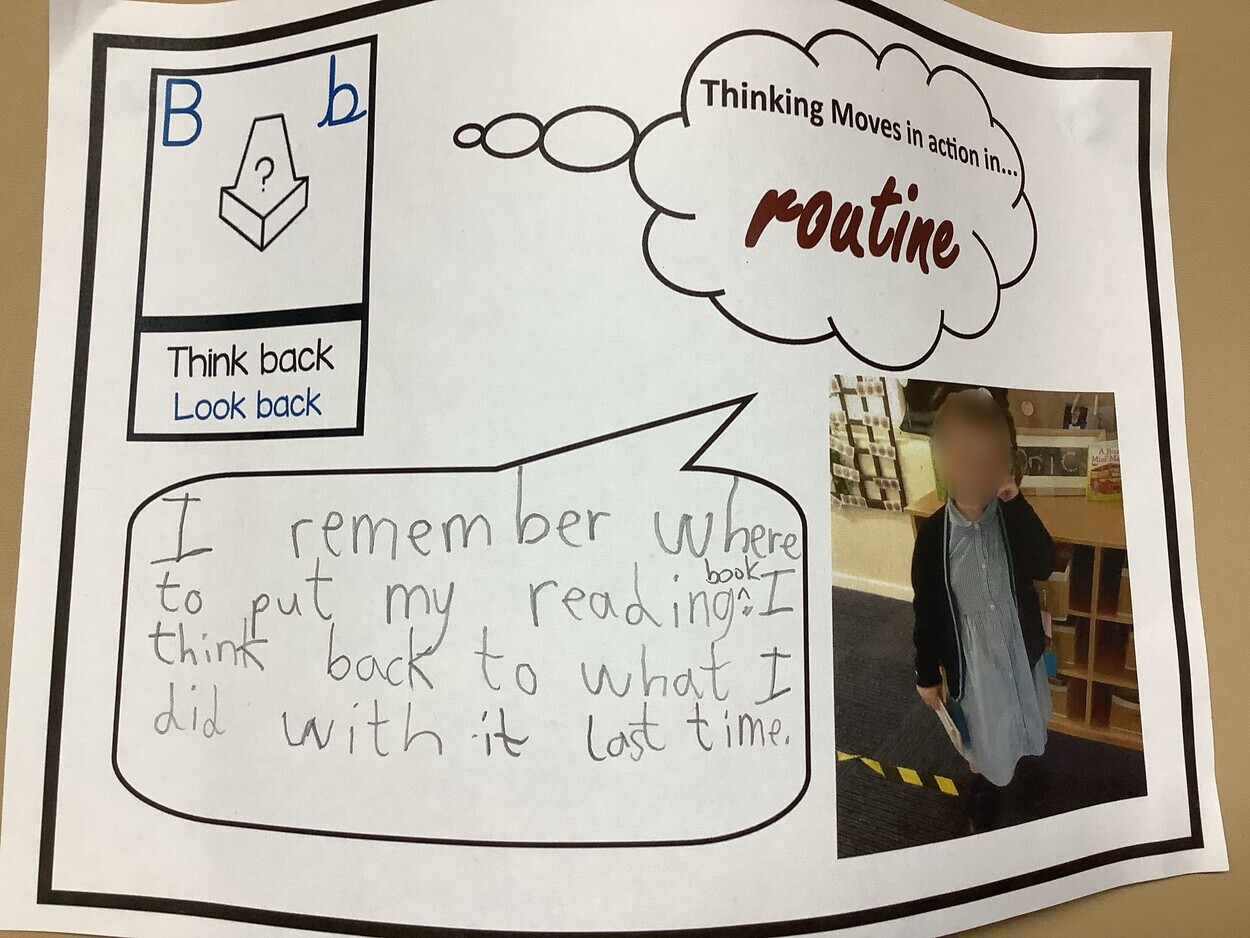 B b
?
Think back
Look back
Thinking Moves in action in...
routine
I remember where
to put my reading book. I
think back to what I
did with it last time.